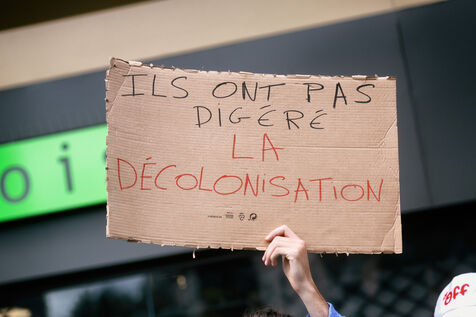 ILS ONT PAS
DIGÉRÉ
LA
DÉCOLONISATION
ois
Off